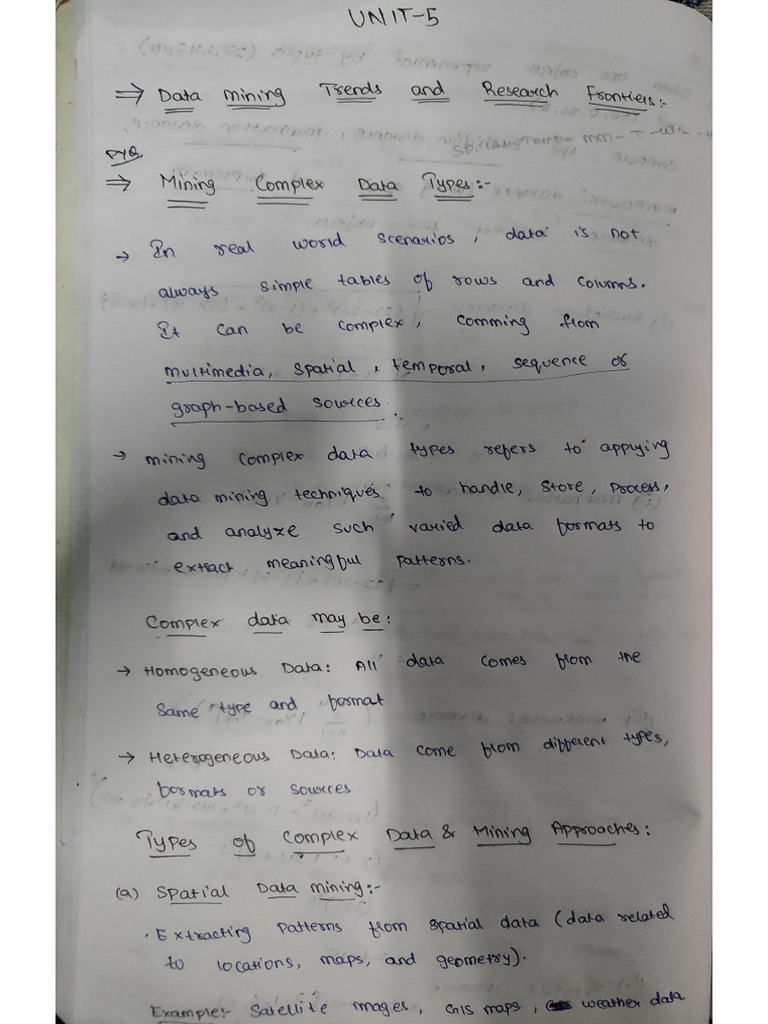 UNIT-5
⇒ Data Mining Trends and Research Frontiers:-
PYQ
⇒ Mining Complex Data Types:-
→ In real world scenarios, data is not
always simple tables of rows and columns.
It can be complex, comming from
multimedia, spatial, temporal, sequence or
graph-based sources.
→ mining complex data types refers to applying
data mining techniques to handle, store, process,
and analyze such varied data formats to
extract meaningful patterns.
Complex data may be:
→ Homogeneous Data: All data comes from the
same type and format
→ Heterogeneous Data: Data come from different types,
formats or sources.
Types of Complex Data & Mining Approaches:
(a) Spatial Data mining:-
. Extracting patterns from spatial data (data related
to locations, maps, and geometry).
Example:- Satellite images, GIS maps, weather data